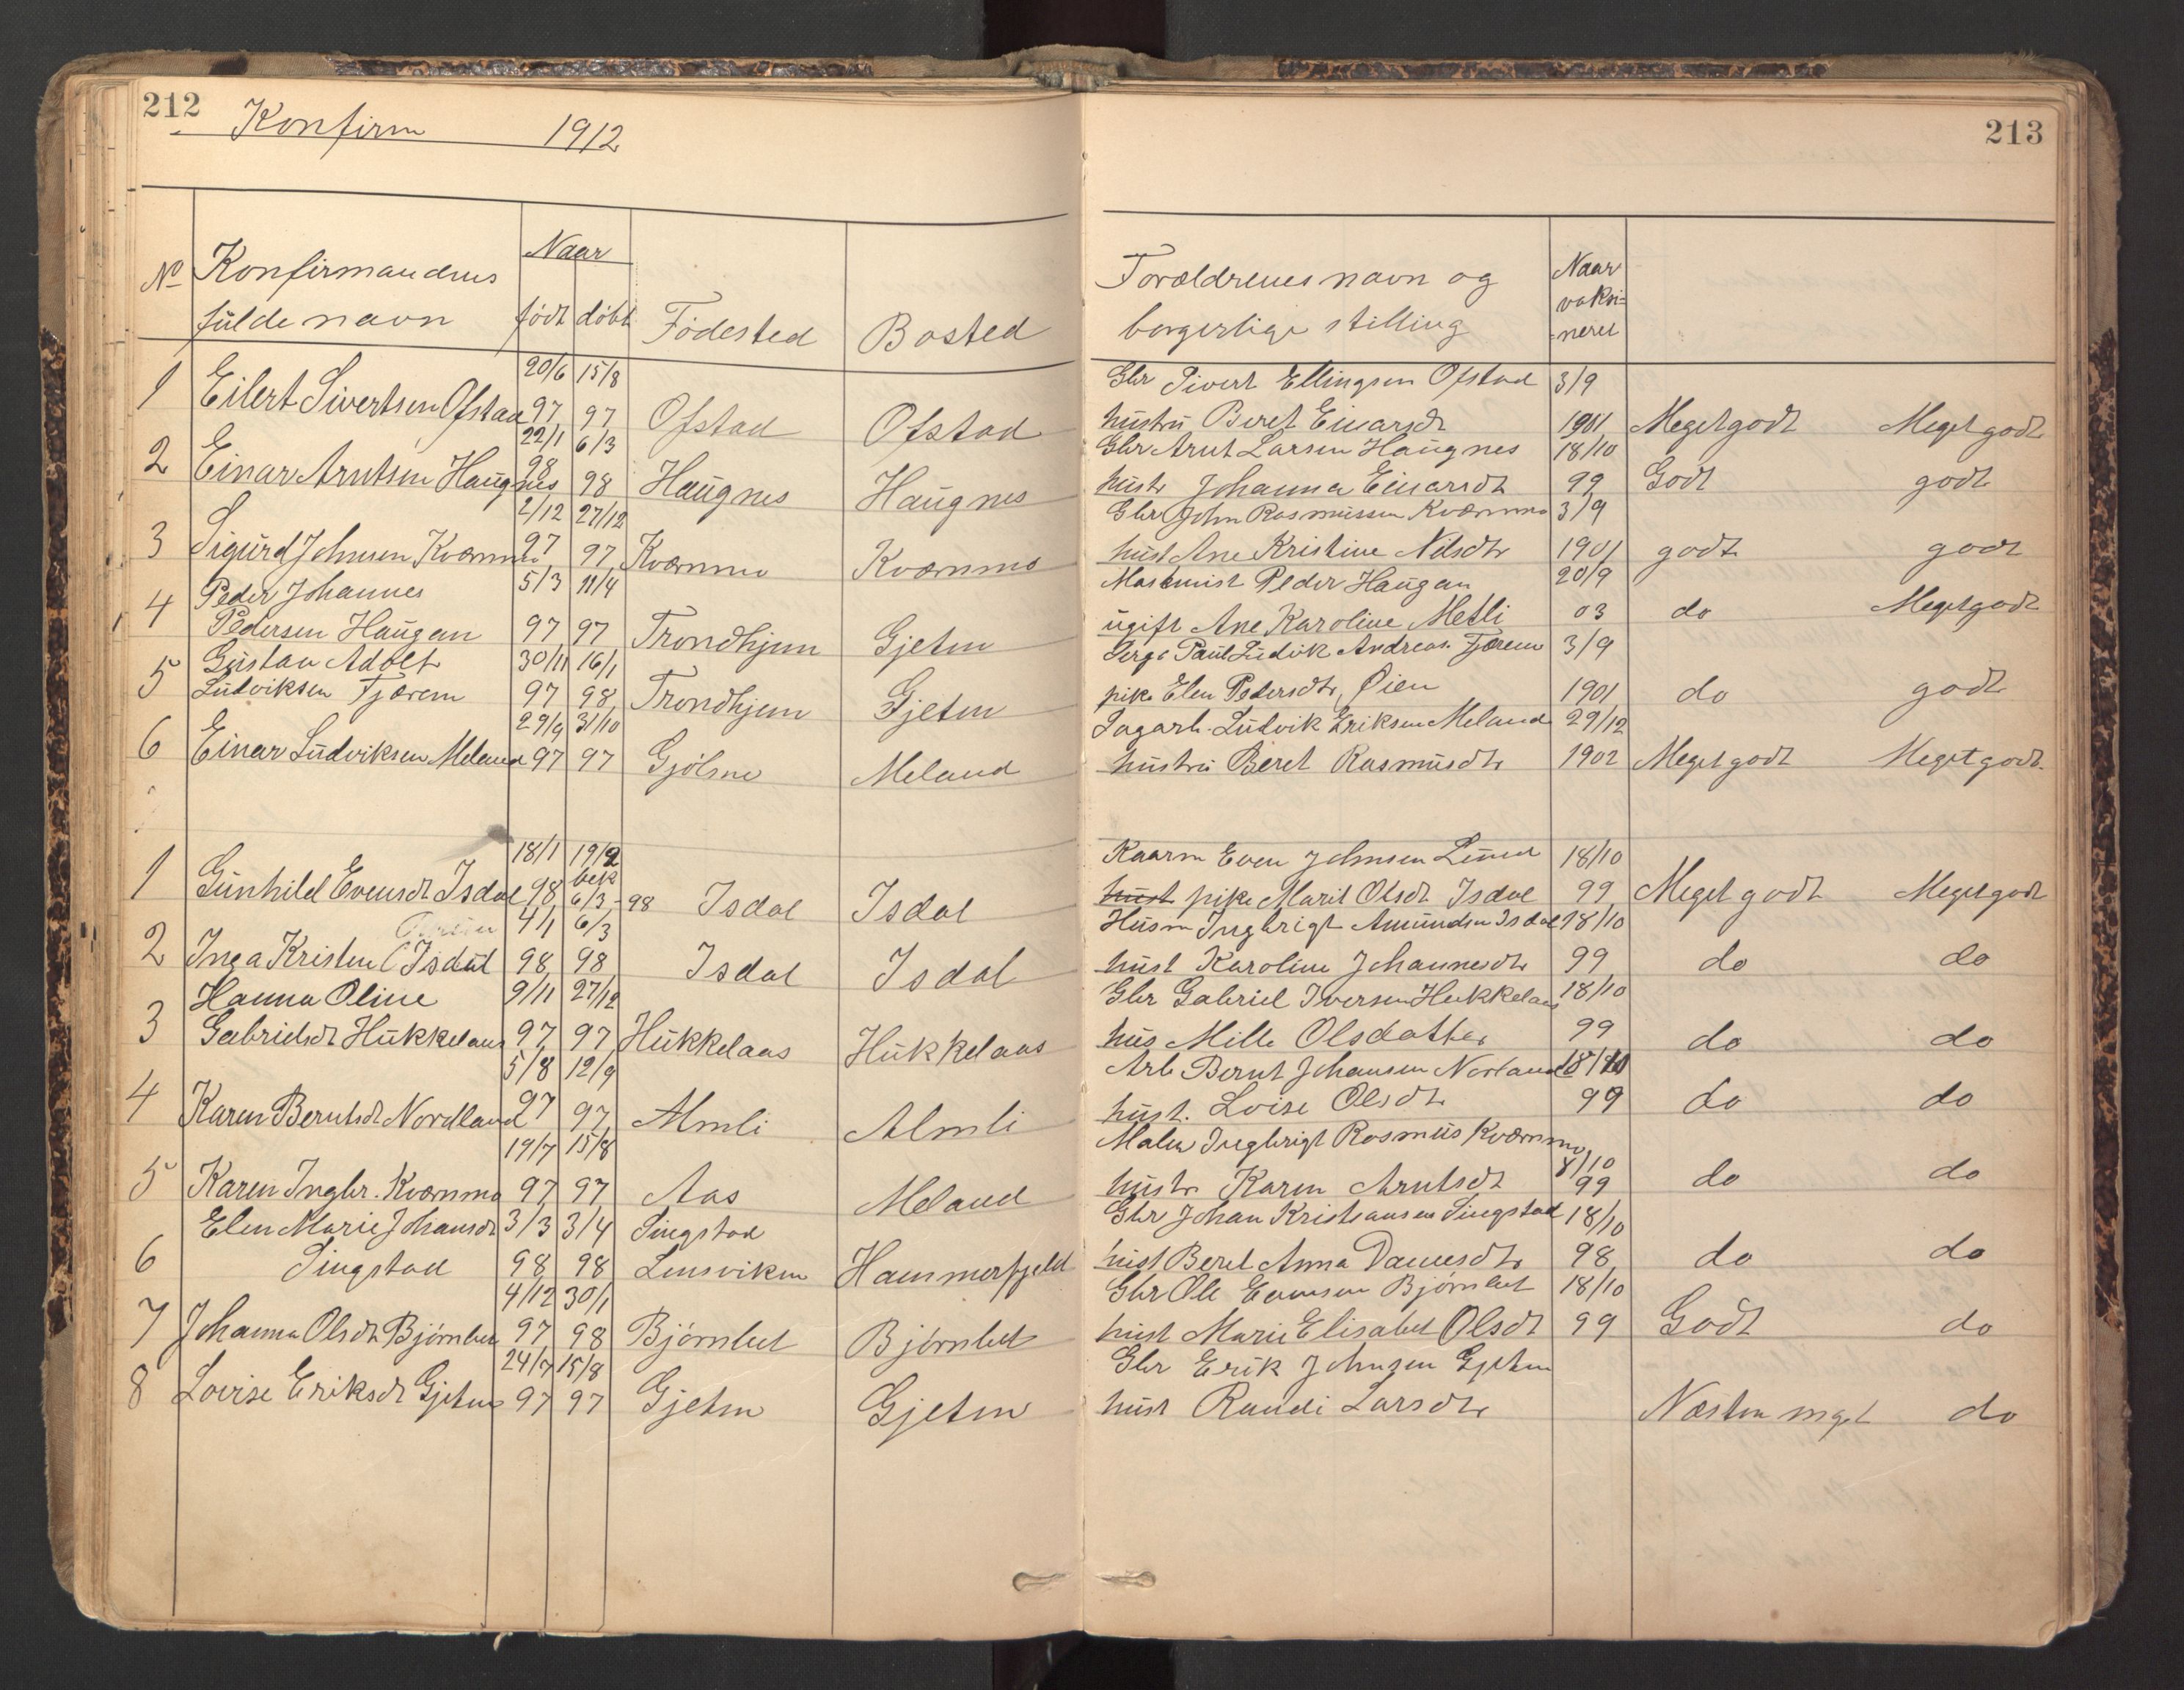 212
Konfirm 1912
213
No
Konfirmandens
fulde navn
Naar
født døbt
Fødested
Bosted
Forældrenes navn og
borgerlige stilling
Naar
vaksi-
neret
20/6 15/8 Gbr Sivert Ellingsen Ofstad 3/9
1 Eilert Sivertsen Ofstad 97 97 Ofstad Ofstad hustru Beret Einarsdt 1901 Meget godt Meget godt
22/1 6/3 Gbr Arnt Larsen Haugnes 18/10
2 Einar Arntsen Haugnes 98 98 Haugnes Haugnes hustr Johanna Einarsdt 99 Godt godt
2/12 27/12 Gbr John Rasmussen Kvernmo 3/9
3 Sigurd Johnsen Kvernmo 97 97 Kvernmo Kvernmo hust Ane Kristine Nilsdtr 1901 godt godt
Peder Johannes 5/3 11/4 Maskinist Peder Haugan 20/9
4 Pedersen Haugan 97 97 Trondhjem Gjeten ugift Ane Karoline Metli 03 do Meget godt
Gustav Adolf 30/11 16/1 Serg. Paul Ludvik Andreas. Fjærem 3/9
5 Ludviksen Fjærem 97 98 Trondhjem Gjeten pike Elen Pedersdtr, Øien 1901 do godt
29/9 31/10 Sagarb. Ludvik Eriksen Meland 29/12
6 Einar Ludviksen Meland 97 97 Gjølme Meland hustru Beret Rasmusdtr 1902 Meget godt Meget godt.
18/1 19/2 Kaarm Even Johnsen 18/10
bek
1 Gunhild Evensdt Isdal 98 6/3-98 Isdal Isdal hust pike Marit Olsdt Isdal 99 Meget godt Meget godt
4/1 6/3 Husm Ingbrigt Amundsen Isdal 18/10
2 Inga Kristen (Isdal 98 98 Isdal Isdal hust Karoline Johannesdtr 99 do do
Hanna Oline 9/11 27/12 Gbr Gabriel Iversen Hukkelaas 18/10
3 Gabrielsdt Hukkelaas 97 97 Hukkelaas Hukkelaas hus Mille Olsdatter 99 do do
5/8 12/9 Arb Bernt Johansen Norland 18/10
4 Karen Berntsdt Nordland 97 97 Almli Almli hust. Loise Olsdtr 99 do do
19/7 15/8 Maler Ingbrigt Rasmus Kvernmo
8/10
5 Karen Ingbr. Kvernmo 97 97 Aas Meland hustr. Karen Arntsdt 99 do do
Elen Marie Johansdt 3/3 3/4 Singstad Gbr Johan Kristiansen Singstad 18/10
6 Singstad 98 98 Lensviken Hammerfjeld hust Beret Anna Danesdtr 98 do do
4/12 30/1 Gbr Ole Evensen Bjørnbet 18/10
7 Johanna Olsdt Bjørnbet 97 98 Bjørnbet Bjørnbet hust Marie Elisabet Olsdt 99 Godt do
24/7 15/8 Gbr Erik Johnsen Gjeten
8 Lovise Eriksdt Gjeten 97 97 Gjeten Gjeten hust Randi Larsdtr Næsten meget do